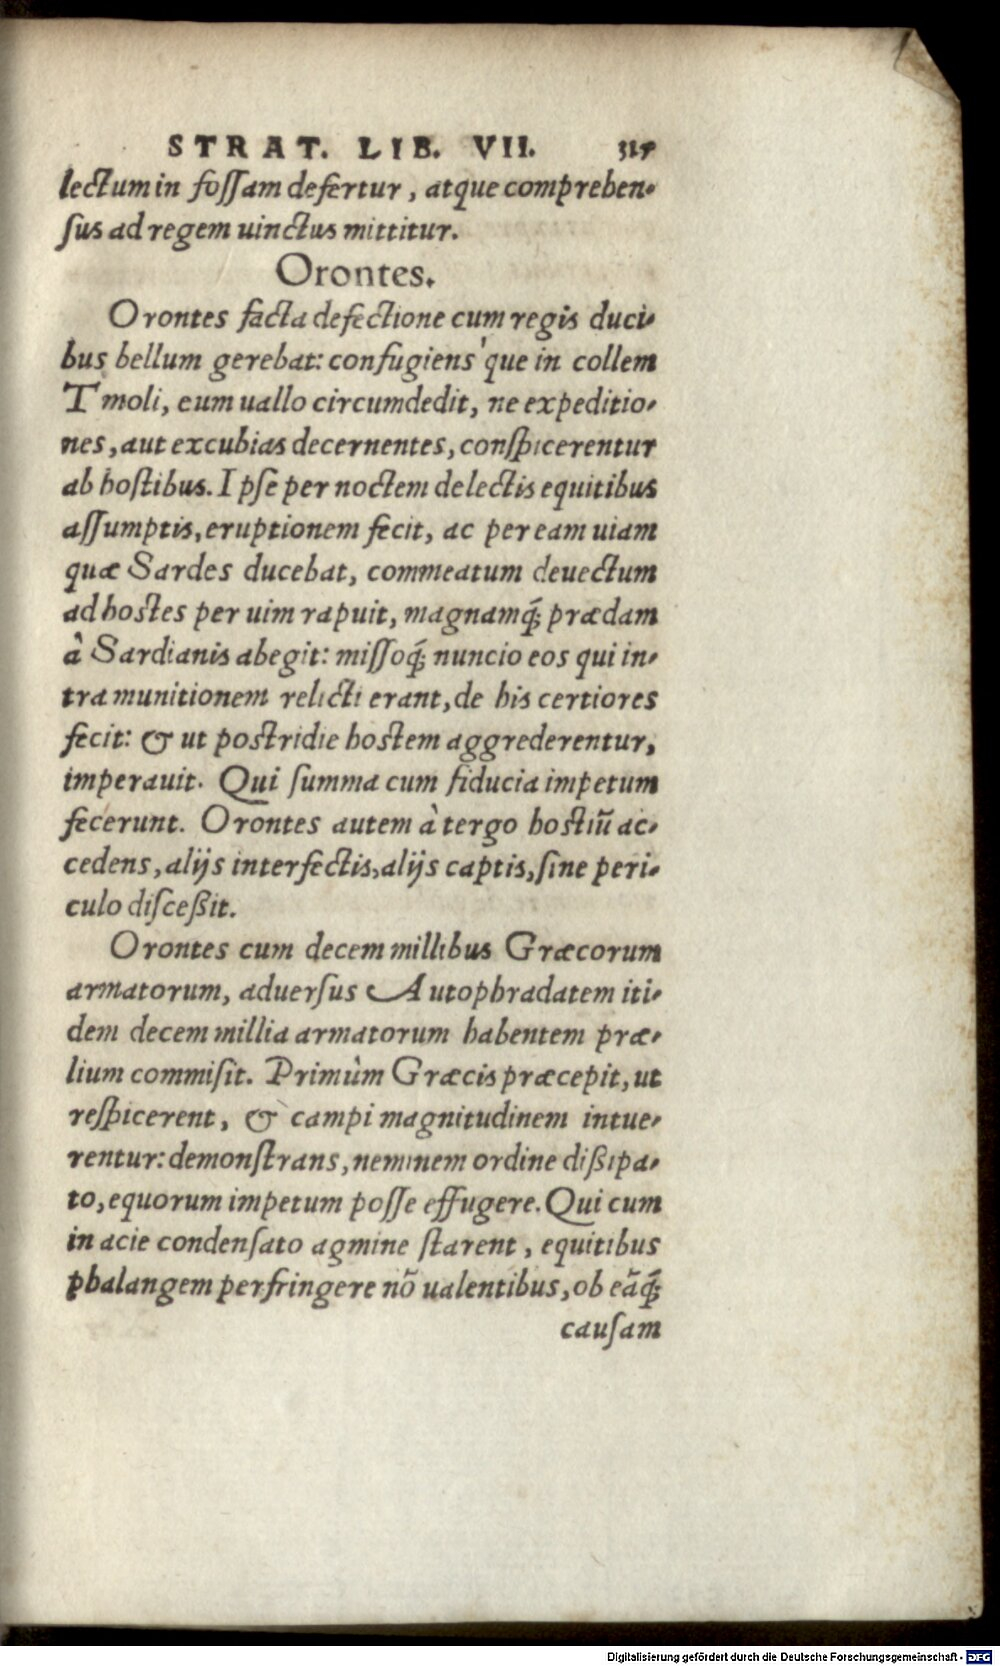 STRAT. LIB. VII. 315
lectum in foſſam defertur, atque comprehen-
ſus ad regem uinctus mittitur.
Orontes.
Orontes facta defectione cum regis duci-
bus bellum gerebat: confugiens'que in collem
Tmoli, eum uallo circumdedit, ne expeditio-
nes, aut excubias decernentes, conſpicerentur
ab hoſtibus. Ipſe per noctem delectis equitibus
aſſumptis, eruptionem fecit, ac per eam uiam
quæ Sardes ducebat, commeatum deuectum
ad hoſtes per uim rapuit, magnamq́; prædam
à Sardianis abegit: miſſoq́; nuncio eos qui in-
tra munitionem relicti erant, de his certiores
fecit: & ut poſtridie hoſtem aggrederentur,
imperauit. Qui ſumma cum fiducia impetum
fecerunt. Orontes autem à tergo hoſtiū ac-
cedens, alijs interfectis, alijs captis, ſine peri-
culo diſceßit.
Orontes cum decem millibus Græcorum
armatorum, aduerſus Autophradatem iti-
dem decem millia armatorum habentem præ-
lium commiſit. Primùm Græcis præcepit, ut
reſpicerent, & campi magnitudinem intue-
rentur: demonſtrans, neminem ordine dißipa-
to, equorum impetum poſſe effugere. Qui cum
in acie condenſato agmine ſtarent, equitibus
phalangem perfringere nō ualentibus, ob eāq́;
cauſam
Digitalisierung gefördert durch die Deutsche Forschungsgemeinschaft - DFG